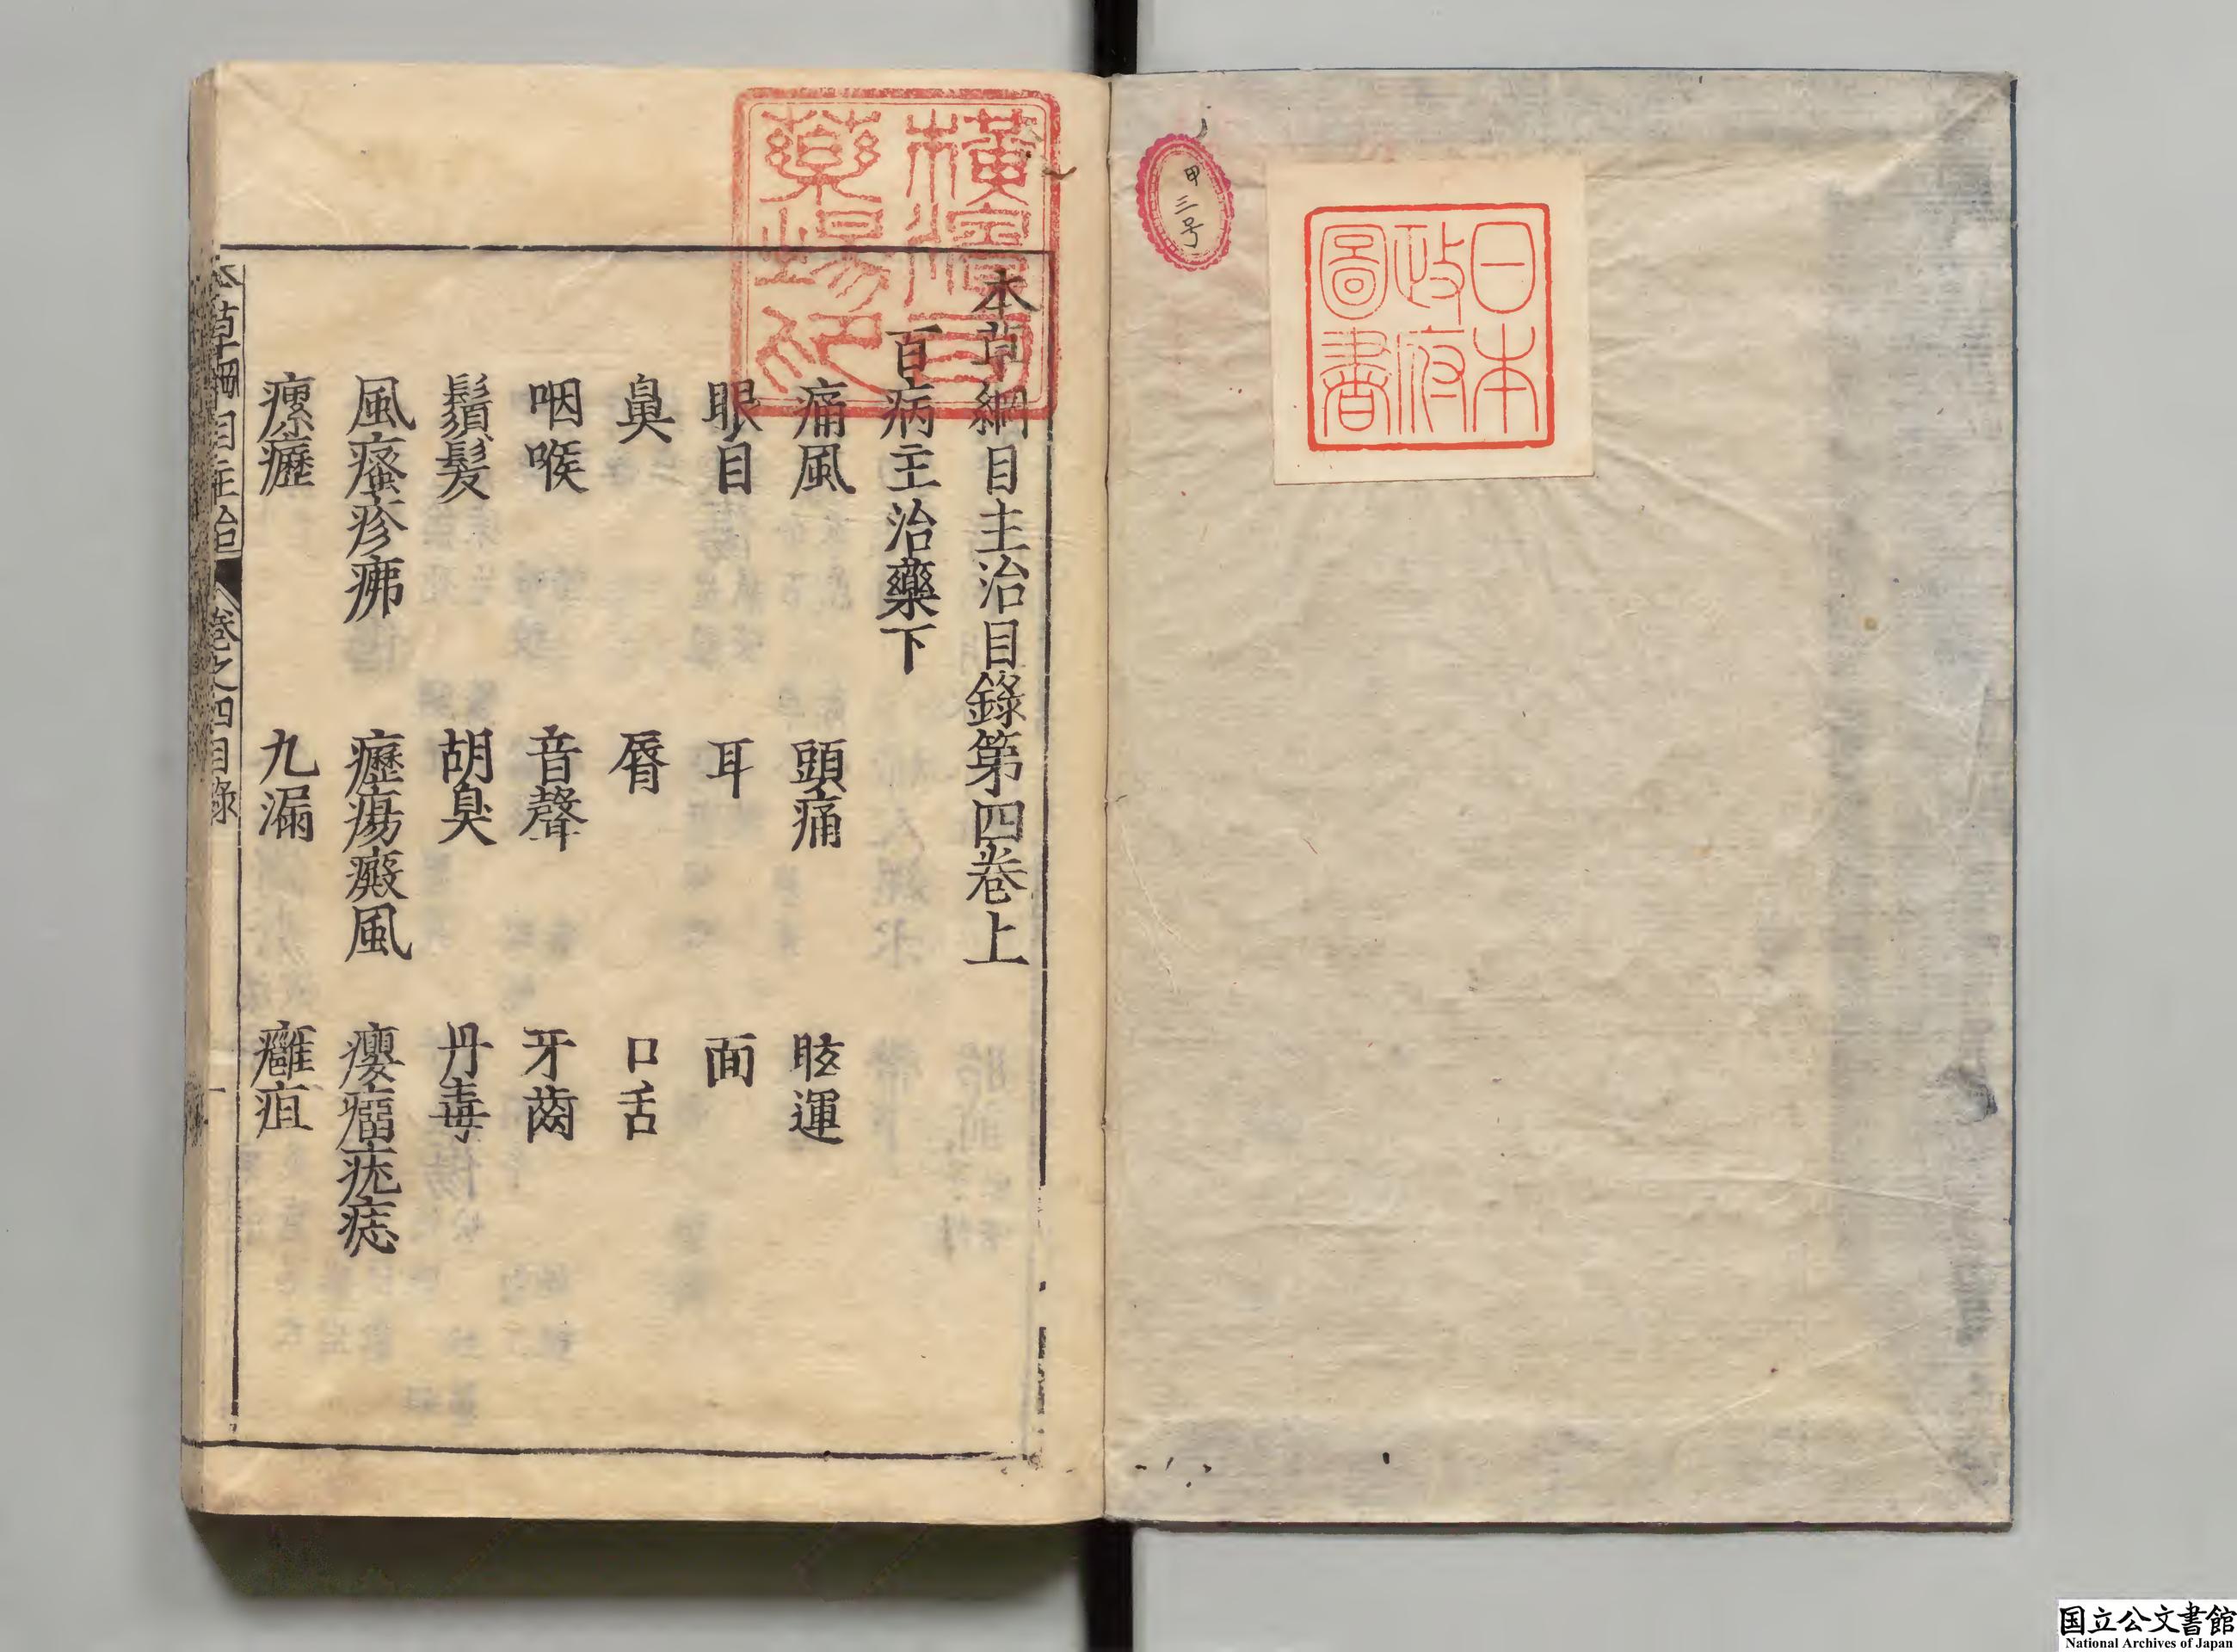 甲三号
日本
政府
圖書
横濱司
藥場印
本草綱目主治目錄第四卷上
百病主治藥下
痛風 頭痛 眩運
眼目 耳 面
鼻 脣 口舌
咽喉 音聲 牙齒
鬚髮 胡臭 丹毒
風瘙疹疿 癧瘍癜風 癭瘤疣痣
瘰癧 九漏 癰疽
本草綱目主治 卷之四目錄 一
国立公文書館
National Archives of Japan